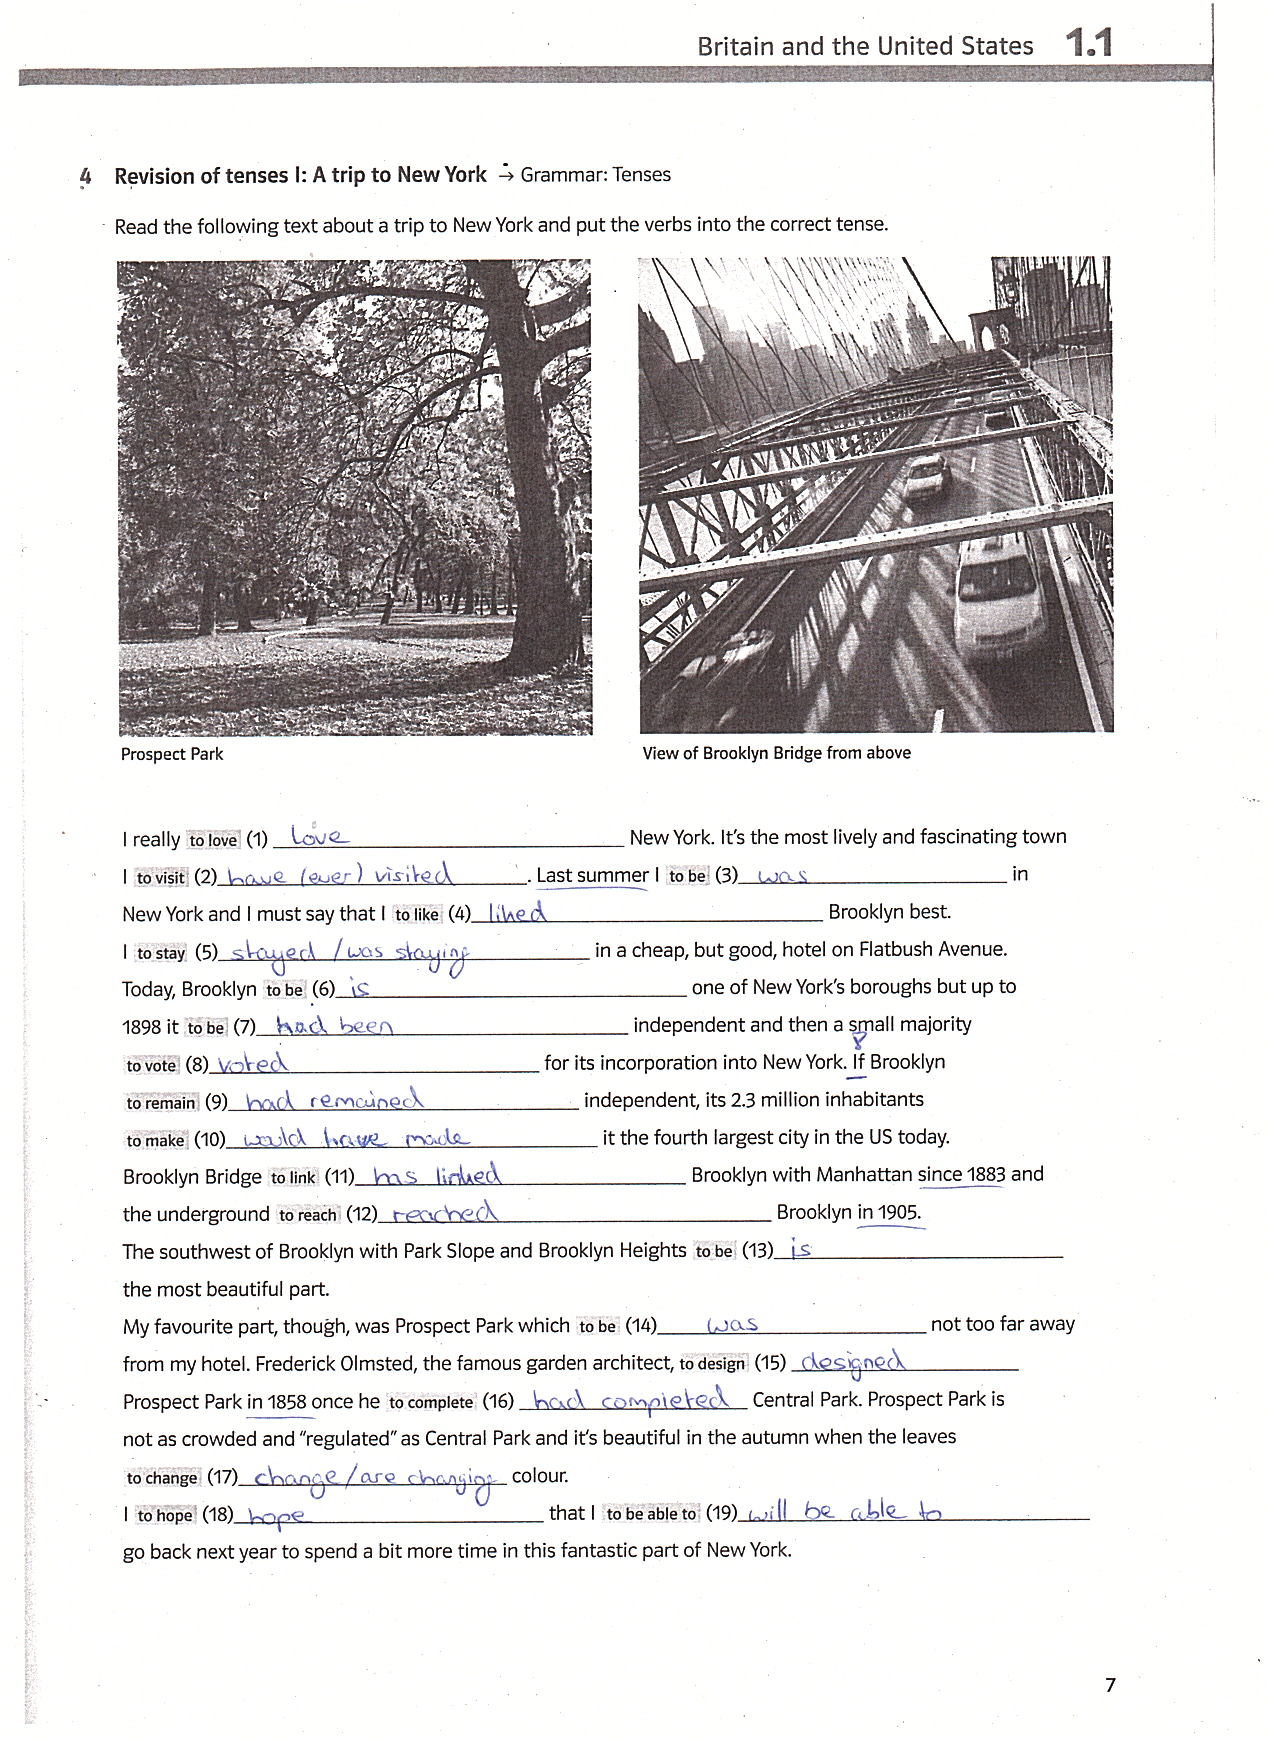 Britain and the United States 1.1
4 Revision of tenses I: A trip to New York → Grammar: Tenses
Read the following text about a trip to New York and put the verbs into the correct tense.
Prospect Park
View of Brooklyn Bridge from above
I really to love (1) love New York. It's the most lively and fascinating town
I to visit (2) have (ever) visited. Last summer I to be (3) was in
New York and I must say that I to like (4) liked Brooklyn best.
I to stay (5) stayed / was staying in a cheap, but good, hotel on Flatbush Avenue.
Today, Brooklyn to be (6) is one of New York's boroughs but up to
1898 it to be (7) had been independent and then a small majority
to vote (8) voted for its incorporation into New York. If Brooklyn
to remain (9) had remained independent, its 2.3 million inhabitants
to make (10) would have made it the fourth largest city in the US today.
Brooklyn Bridge to link (11) has linked Brooklyn with Manhattan since 1883 and
the underground to reach (12) reached Brooklyn in 1905.
The southwest of Brooklyn with Park Slope and Brooklyn Heights to be (13) is
the most beautiful part.
My favourite part, though, was Prospect Park which to be (14) was not too far away
from my hotel. Frederick Olmsted, the famous garden architect, to design (15) designed
Prospect Park in 1858 once he to complete (16) had completed Central Park. Prospect Park is
not as crowded and "regulated" as Central Park and it's beautiful in the autumn when the leaves
to change (17) change / are changing colour.
I to hope (18) hope that I to be able to (19) will be able to
go back next year to spend a bit more time in this fantastic part of New York.
7